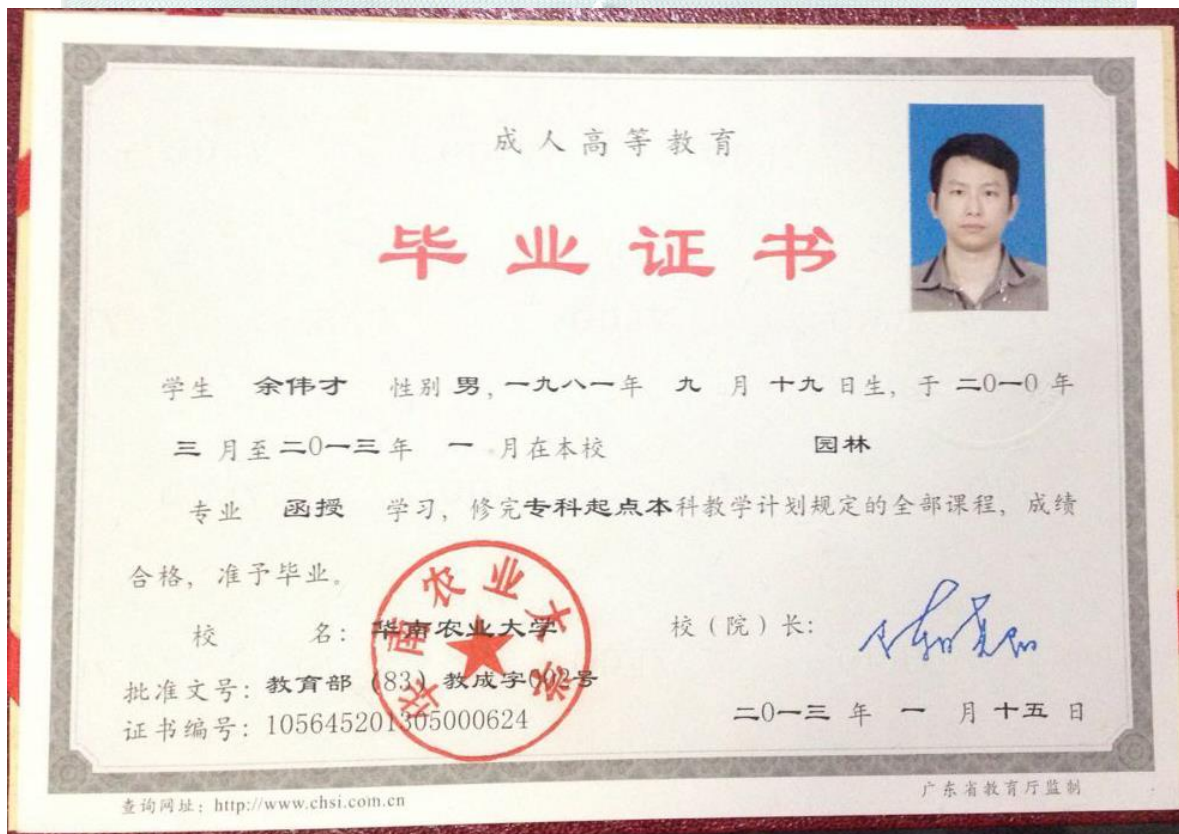 成人高等教育
毕业证书
学生 余伟才 性别 男, 一九八一年 九 月 十九 日生, 于 二0一0 年
三 月至 二0一三 年 一 月在本校 园林
专业 函授 学习, 修完专科起点本科教学计划规定的全部课程, 成绩
合格, 准予毕业。
校 名: 华南农业大学 校(院)长:
批准文号: 教育部 (83) 教成字002号
证书编号: 105645201305000624 二0一三 年 一 月 十五 日
华南农业大学
查询网址: http://www.chsi.com.cn 广东省教育厅监制